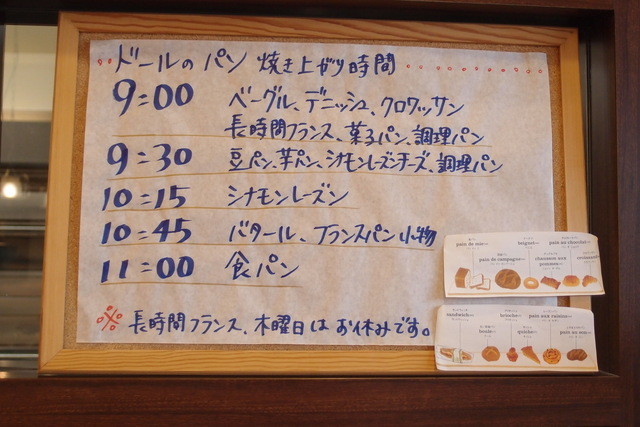 ドールのパン 焼き上がり時間
9:00 ベーグル、デニッシュ、クロワッサン
長時間フランス、菓子パン、調理パン
9:30 豆パン、芋パン、シナモンレーズンチーズ、調理パン
10:15 シナモンレーズン
10:45 バタール、フランスパン小物
11:00 食パン
※ 長時間フランス、木曜日はお休みです。
pain de mie
beignet
pain au chocolat
pain de campagne
chausson aux pommes
croissant
sandwich
brioche
pain aux raisins
boule
quiche
pain au son